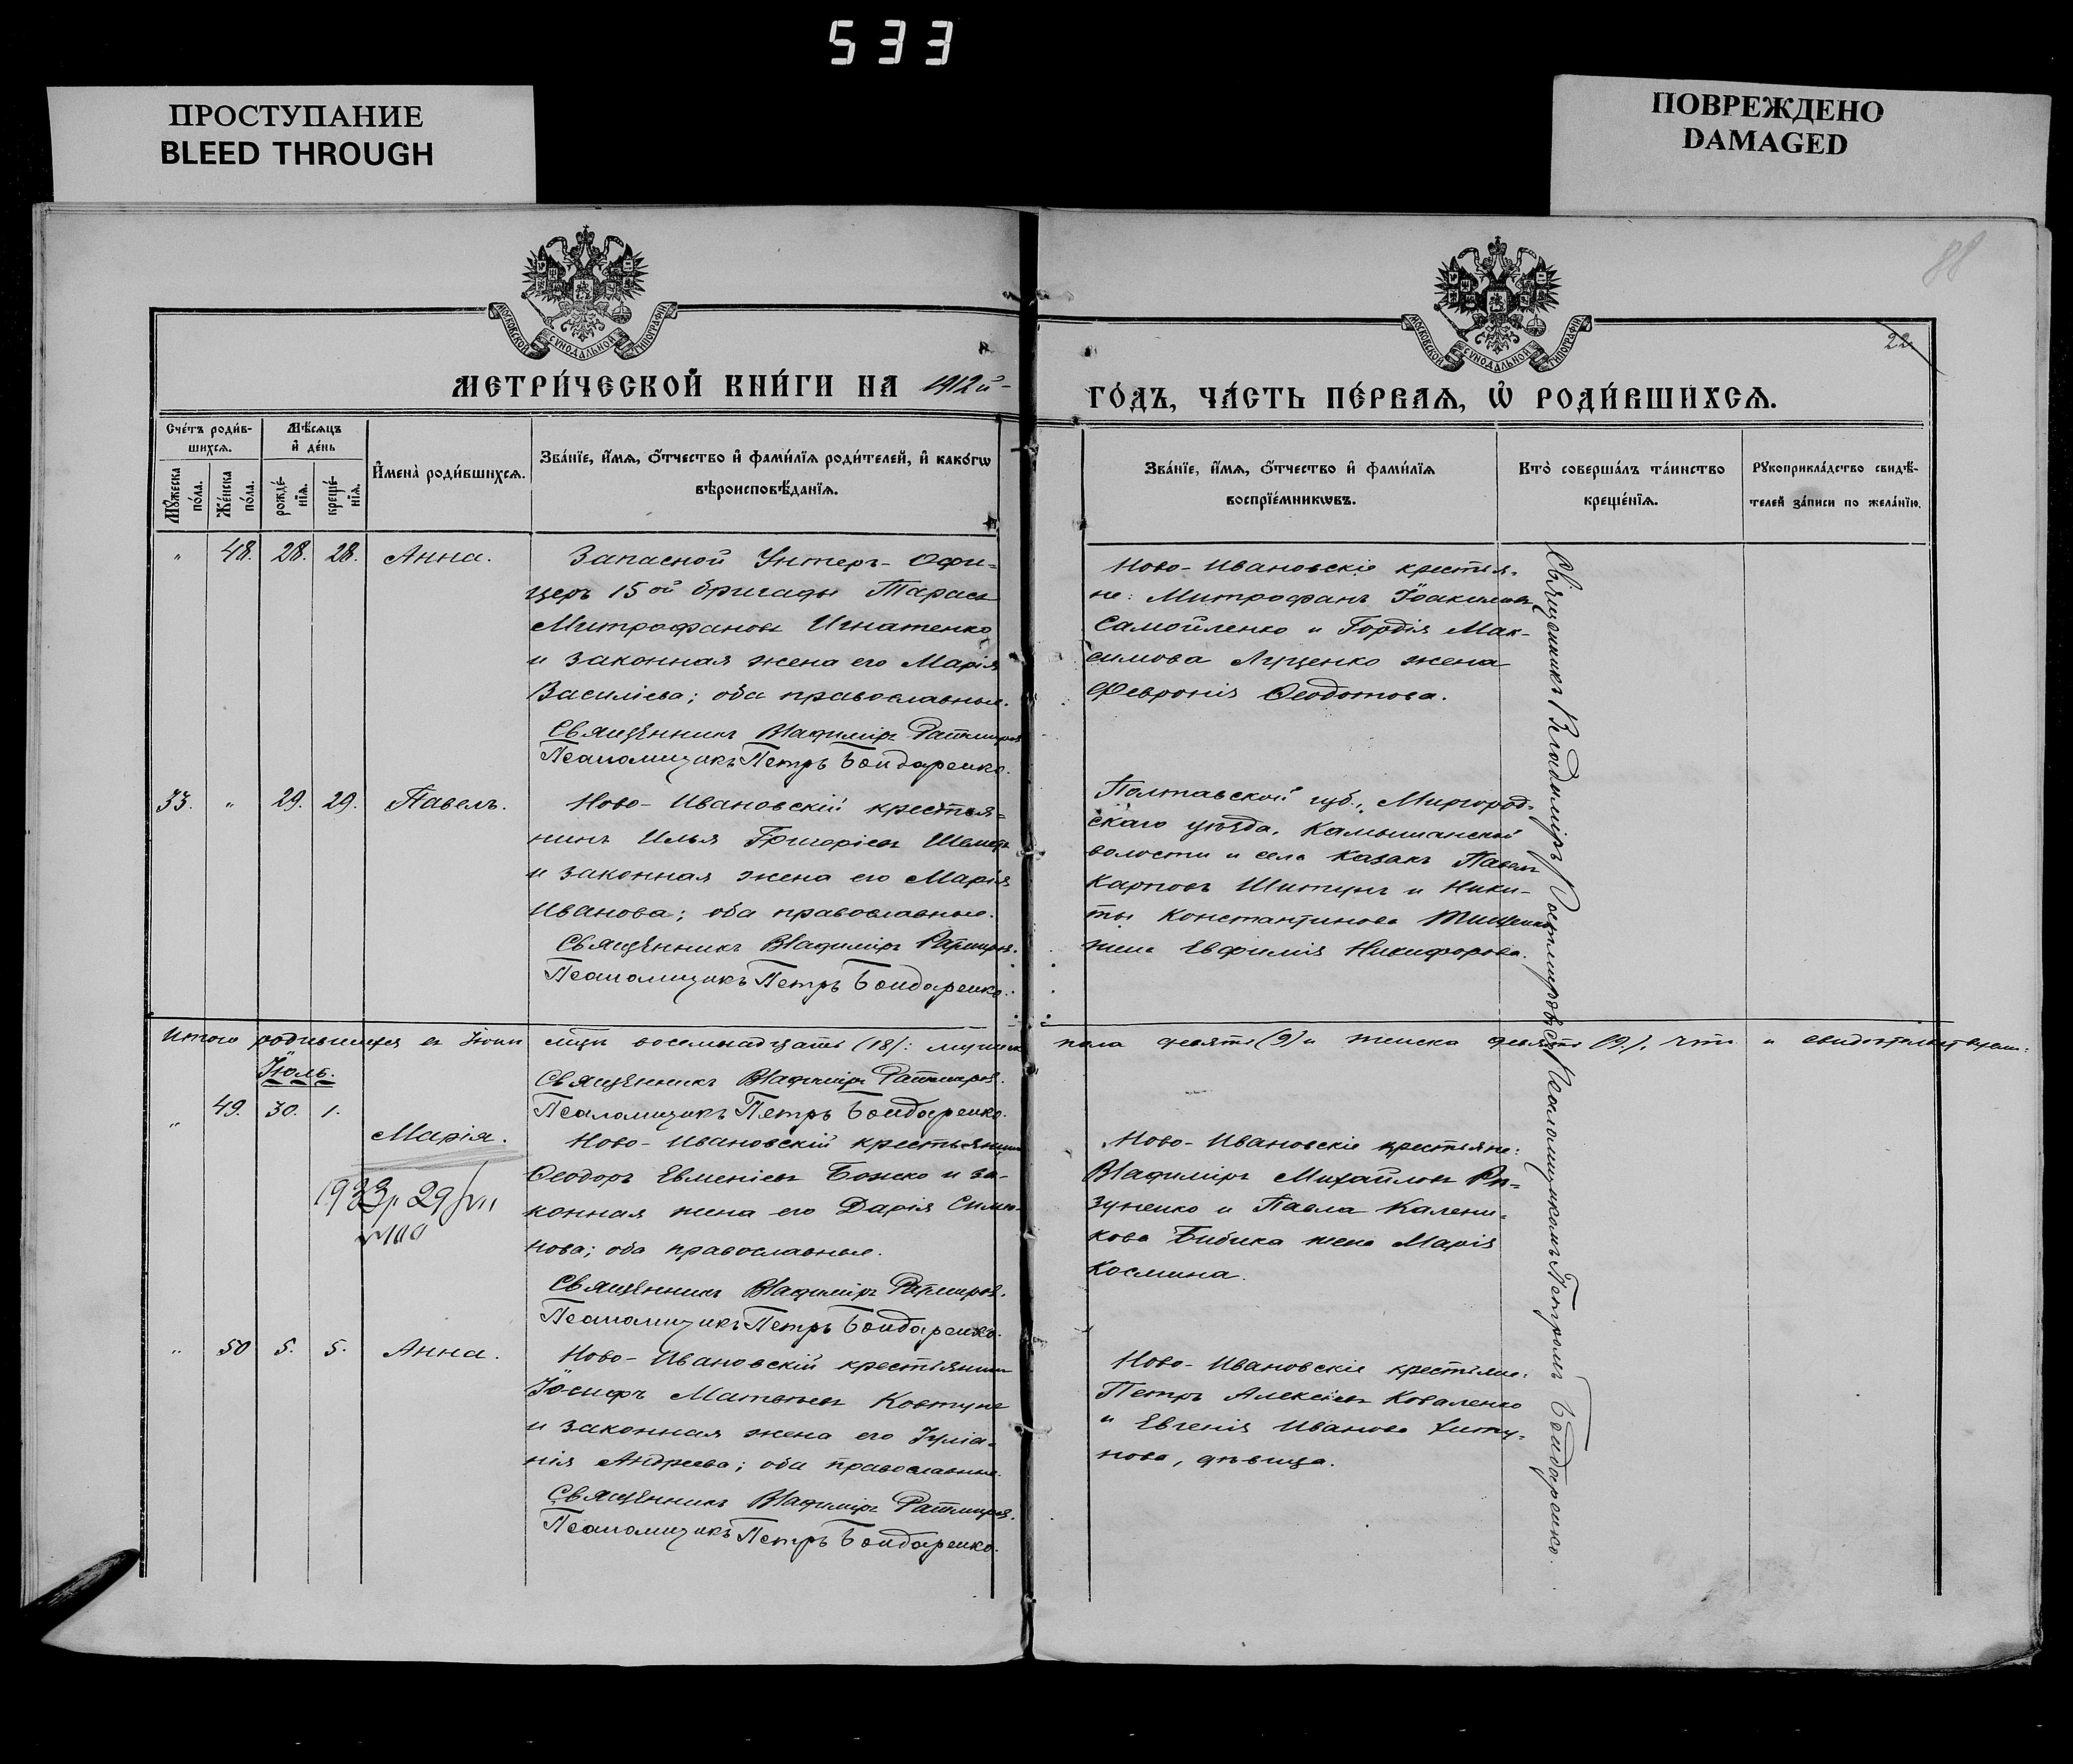 533
ПРОСТУПАНИЕ
BLEED THROUGH
ПОВРЕЖДЕНО
DAMAGED
88
22
МОСКОВСКОЙ СѴНОДАЛЬНОЙ ТИПОГРАФІИ
МОСКОВСКОЙ СѴНОДАЛЬНОЙ ТИПОГРАФІИ
МЕТРИ́ЧЕСКОЙ КНИ́ГИ НА 1912й
ГО́ДЪ, ЧА́СТЬ ПЕ́РВАЯ, Ѡ РОДИ́ВШИХСЯ.
Сче́тъ роди́в-
шихся.
Мѣ́сяцъ
и де́нь
Мꙋ́жеска
по́ла.
Же́нска
по́ла.
рожде́-
нїя.
креще́-
нїя.
Имена̀ роди́вшихся.
Зва́нїе, и́мя, о́тчество и фами́лїя роди́телей, и како́гѡ
вѣроисповѣ́данїя.
Зва́нїе, и́мя, о́тчество и фами́лїя
воспрїе́мникѡвъ.
Кто̀ соверша́лъ та́инство
креще́нїя.
Рꙋкоприкла́дство свидѣ́-
телей за́писи по жела́нїю.
" 48. 28. 28. Анна.
Запасной Унтеръ-Офи-
церъ 15ой бригады Тарасъ
Митрофановъ Игнатенко
и законная жена его Марія
Василіева; оба православные.
Священникъ Владиміръ Ратмировъ
Псаломщикъ Петръ Бондаренко.
Ново-Ивановскіе крестья-
не: Митрофанъ Іоакимовъ
Самойленко и Гордія Мак-
симова Луценко жена
Февронія Ѳеодотова.
33. " 29. 29. Павелъ.
Ново-Ивановскій крестья-
нинъ Илья Григоріевъ
и законная жена его Марія
Иванова; оба православные.
Священникъ Владиміръ Ратмировъ.
Псаломщикъ Петръ Бондаренко.
Полтавской губ., Миргород-
скаго уѣзда, Камышанской
волости и села казакъ Павелъ
Карповъ Шитунъ и Ники-
ты Константинова Тищенко
жена Евфимія Никифорова.
Итого родившихся въ Іюнѣ мцѣ восемнадцать (18): мужеска пола девять (9) и женска девять (9), что и свидѣтельствуемъ:
Священникъ Владиміръ Ратмировъ.
Псаломщикъ Петръ Бондаренко.
Іюль.
" 49. 30. 1. Марія.
1933 29/VII
Ново-Ивановскій крестьянинъ
Ѳеодоръ Евменіевъ Божко и за-
конная жена его Дарія Симео-
нова; оба православные.
Священникъ Владиміръ Ратмировъ.
Псаломщикъ Петръ Бондаренко.
Ново-Ивановскіе крестьяне:
Владиміръ Михайловъ Рѣ-
зуненко и Павла Калени-
кова Бибика жена Марія
Космина.
" 50 5. 5. Анна.
Ново-Ивановскій крестьянинъ
Іосифъ Матвѣевъ Ковтунъ
и законная жена его Іуліа-
нія Андреева; оба православные.
Священникъ Владиміръ Ратмировъ.
Псаломщикъ Петръ Бондаренко.
Ново-Ивановскіе крестьяне:
Петръ Алексіевъ Коваленко
и Евгенія Иванова
нова, дѣвица.
Священникъ Владиміръ Ратмировъ съ Псаломщикомъ Петромъ Бондаренко.